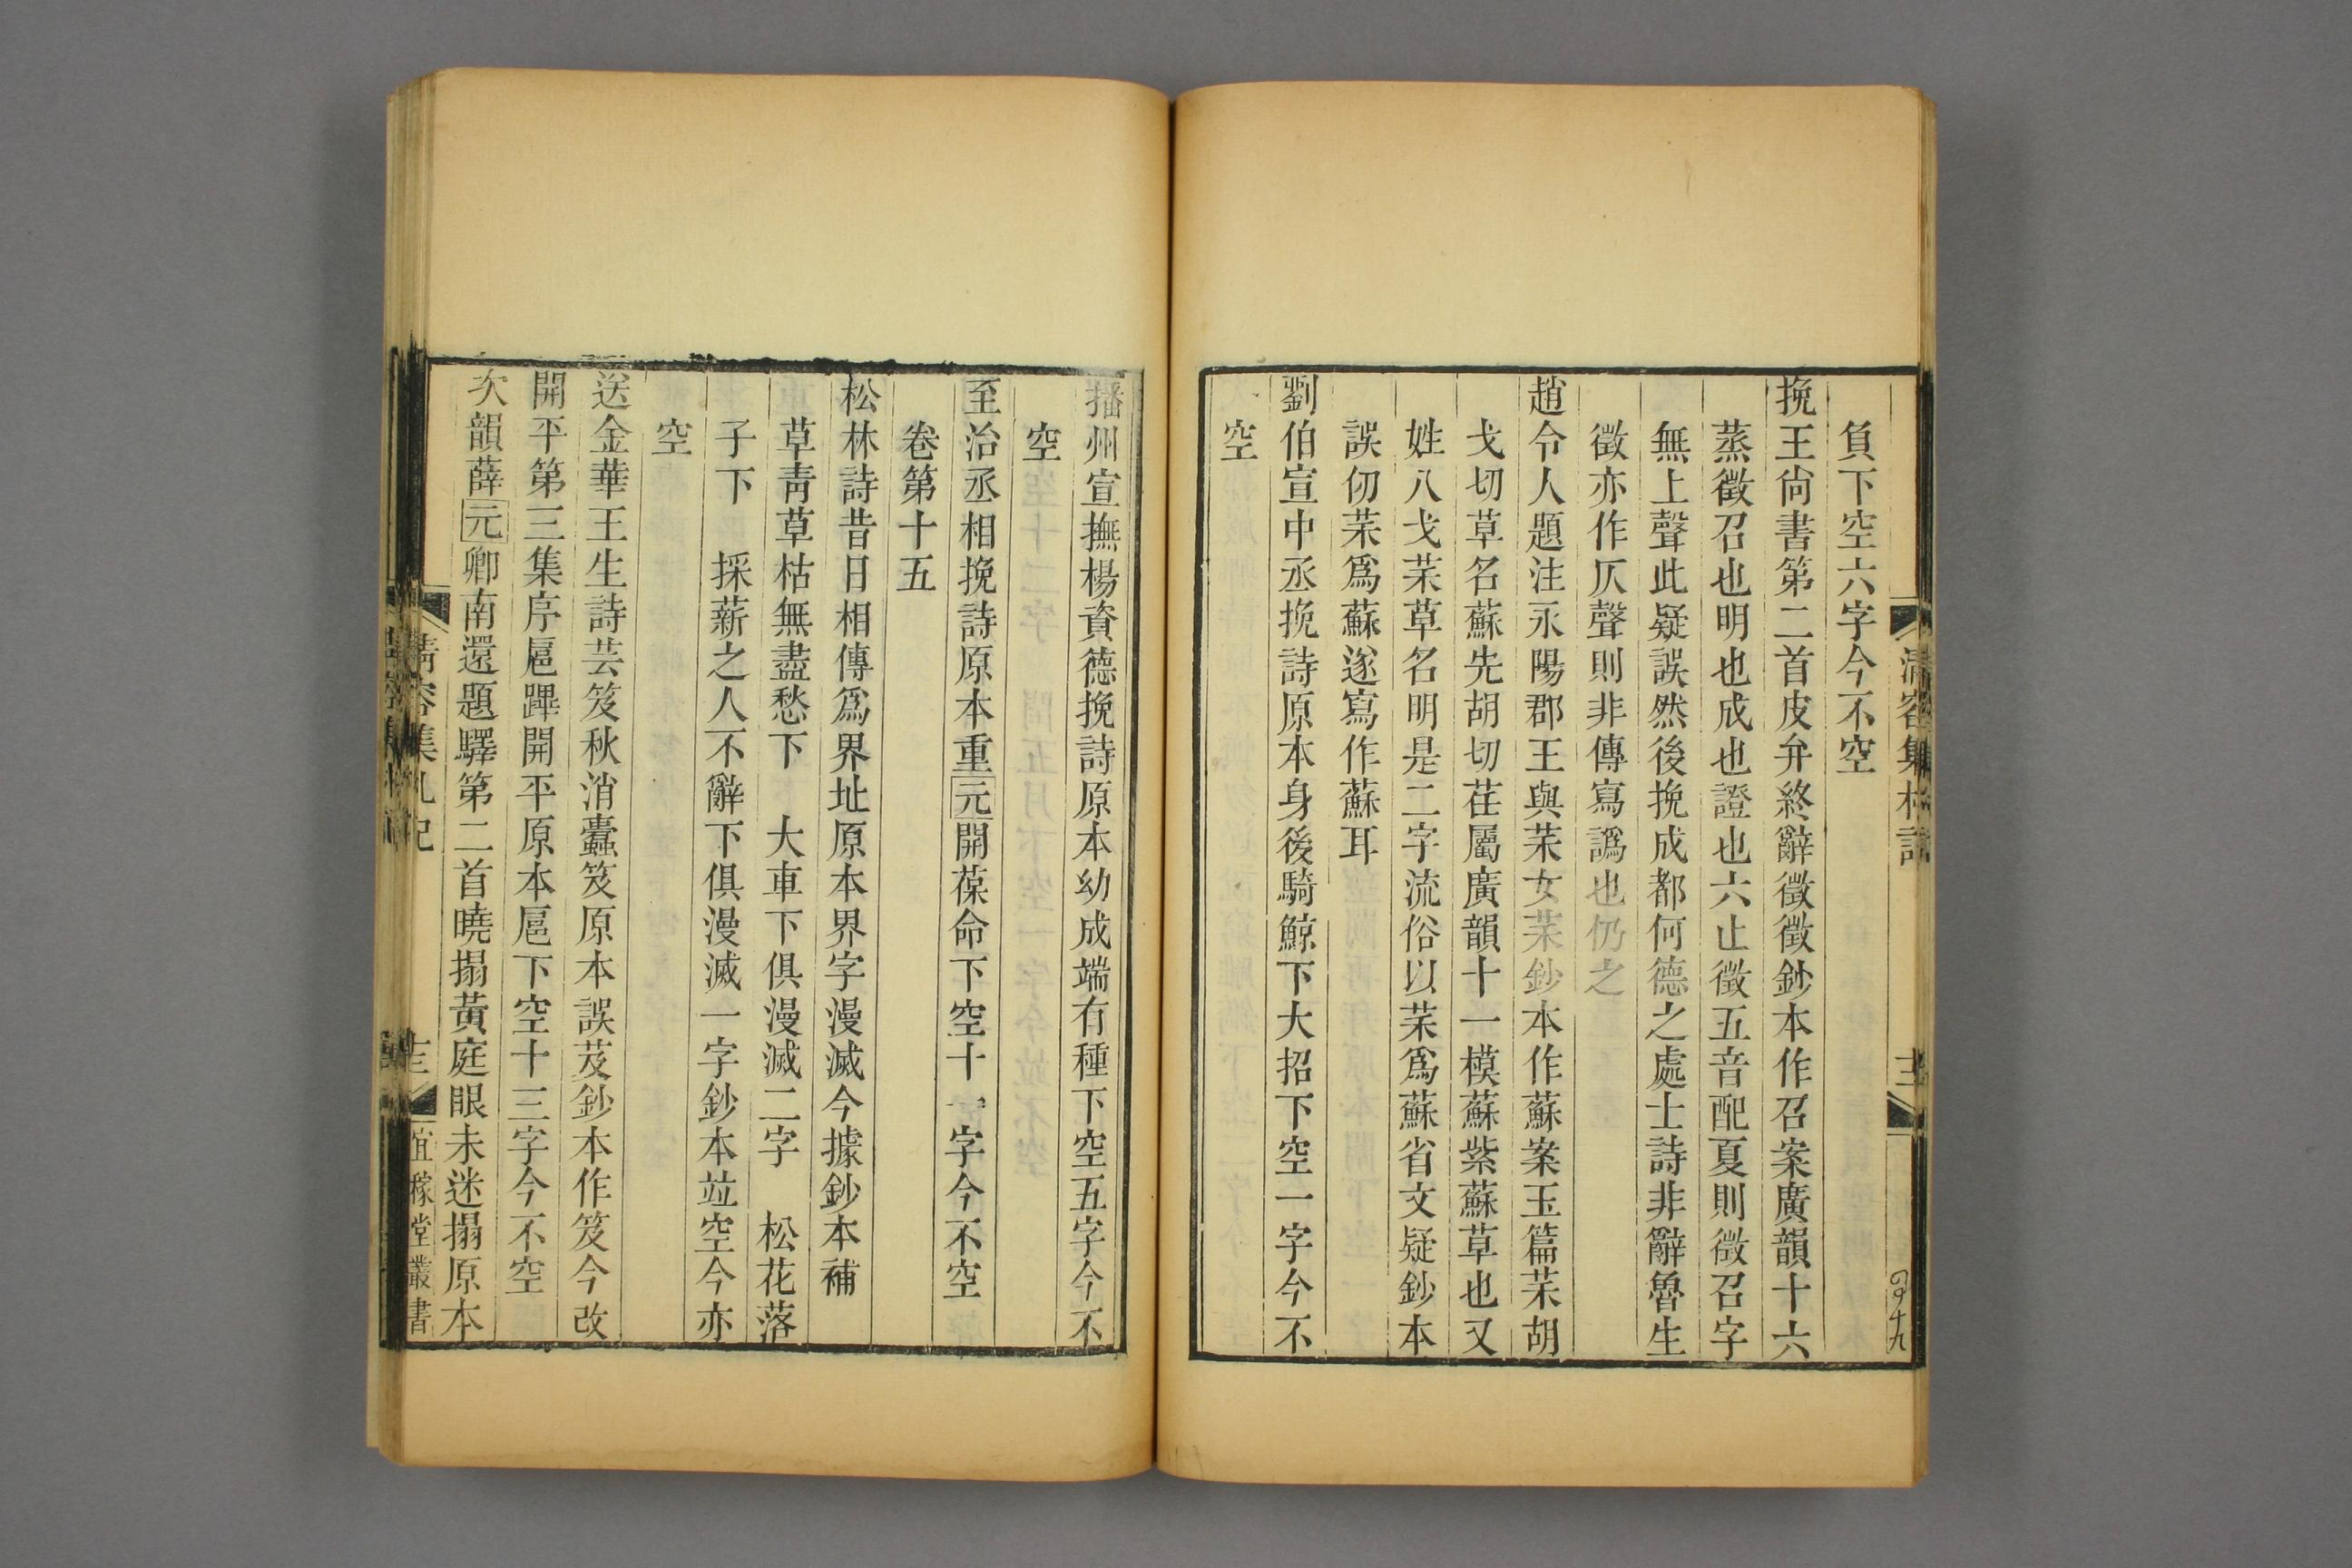 負下空六字今不空
挽王尙書第二首皮弁終辭徵徵鈔本作召案廣韻十六
蒸徵召也明也成也證也六止徵五音配夏則徵召字
無上聲此疑誤然後挽成都何德之處士詩非辭魯生
徵亦作仄聲則非傳寫譌也仍之
趙令人題注永陽郡王與苿女苿鈔本作蘇案玉篇苿胡
戈切草名蘇先胡切荏屬廣韻十一模蘇紫蘇草也又
姓八戈苿草名明是二字流俗以苿爲蘇省文疑鈔本
誤仞苿爲蘇遂寫作蘇耳
劉伯宣中丞挽詩原本身後騎鯨下大招下空一字今不
空
播州宣撫楊資德挽詩原本幼成端有種下空五字今不
空
至治丞相挽詩原本重元開葆命下空十一字今不空
卷第十五
松林詩昔日相傳爲界址原本界字漫滅今據鈔本補
草靑草枯無盡愁下 大車下俱漫滅二字 松花落
子下 採薪之人不辭下俱漫滅一字鈔本竝空今亦
空
送金華王生詩芸笈秋消蠹笈原本誤芨鈔本作笈今改
開平第三集序扈蹕開平原本扈下空十三字今不空
次韻薛元卿南還題驛第二首曉搨黃庭眼未迷搨原本
淸容集札記
十三
宜稼堂叢書